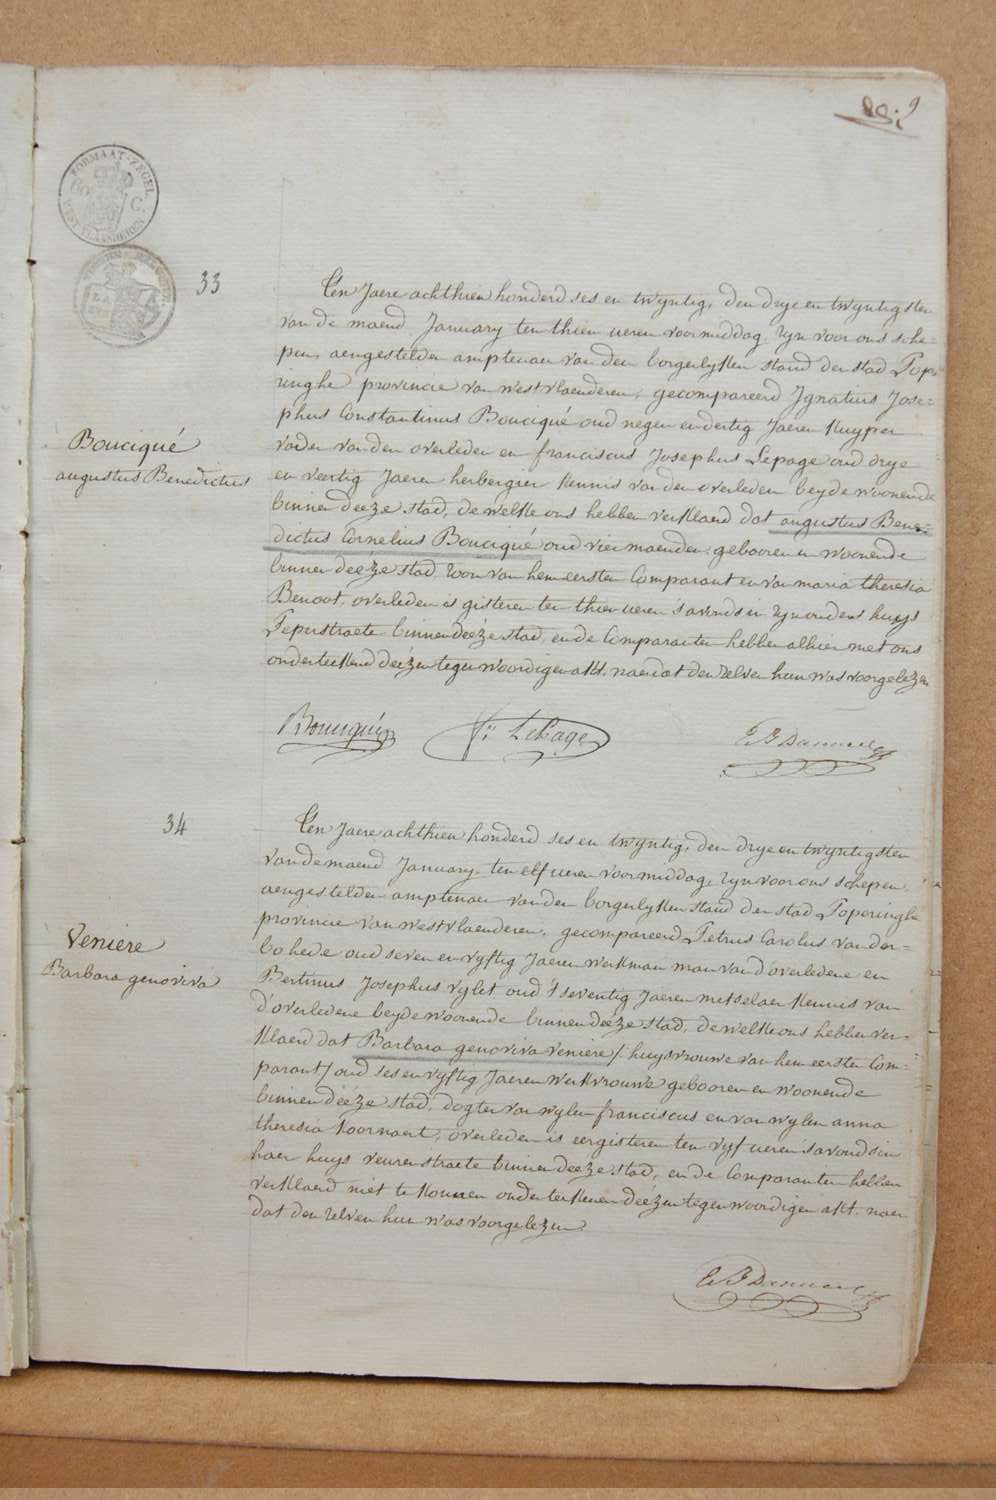 9
FORMAAT-ZEGEL
60 C.
WEST VLAANDEREN
33
Bouciqué
augustus Benedictus
Ten Jaere achthien honderd ses en twyntig, den drye en twyntigsten
van de maend January ten thien ueren voormiddag, zyn voor ons sche-
pen, aengestelden amptenaer van den borgerlyken stand der stad Pope-
ringhe provincie van westvlaenderen, gecompareerd Ignatius Jose-
phus Constantinus Bouciqué oud negen en dertig Jaeren Kuyper
vader van den overleden en franciscus Josephus Lepage oud drye
en veertig Jaeren herbergier Kennis van den overleden beyde woonende
binnen deéze stad, de welke ons hebben verklaerd dat augustus Bene-
dictus Cornelius Bouciqué oud vier maenden, gebooren en woonende
binnen deéze stad, zoon van hem eersten Comparant en van maria theresia
Benoot, overleden is gisteren ten thien ueren s'avonds in zyn ouders huys
Peperstraete binnen deéze stad, en de Comparanten hebben alhier met ons
onderteekend deézen tegenwoordigen akt, naer dat den zelven hun was voorgelezen
Bouciqué
f: LePage
34
Veniere
Barbara genoviva
Ten Jaere achthien honderd ses en twyntig, den drye en twyntigsten
van de maend January, ten elf ueren voormiddag, zyn voor ons schepen
aengestelden amptenaer van den borgerlyken stand der stad Poperinghe
provincie van westvlaenderen, gecompareerd Petrus Carolus van der-
bohede oud seven en vyftig Jaeren werkman man van d'overledene en
Bertinus Josephus vylet oud 't seventig Jaeren metselaer Kennis van
d'overledene beyde woonende binnen deéze stad, de welke ons hebben ver-
klaerd dat Barbara genoviva veniere /huysvrouwe van hem eersten Com-
parant/ oud ses en vyftig Jaeren werkvrouwe gebooren en woonende
binnen deéze stad, dogter van wylen franciscus en van wylen anna
theresia Toornaert, overleden is eergisteren ten vyf ueren s'avonds in
haer huys veurenstraete binnen deeze stad, en de Comparanten hebben
verklaerd niet te konnen onderteekenen deézen tegenwoordigen akt. naer
dat den zelven hun was voorgelezen